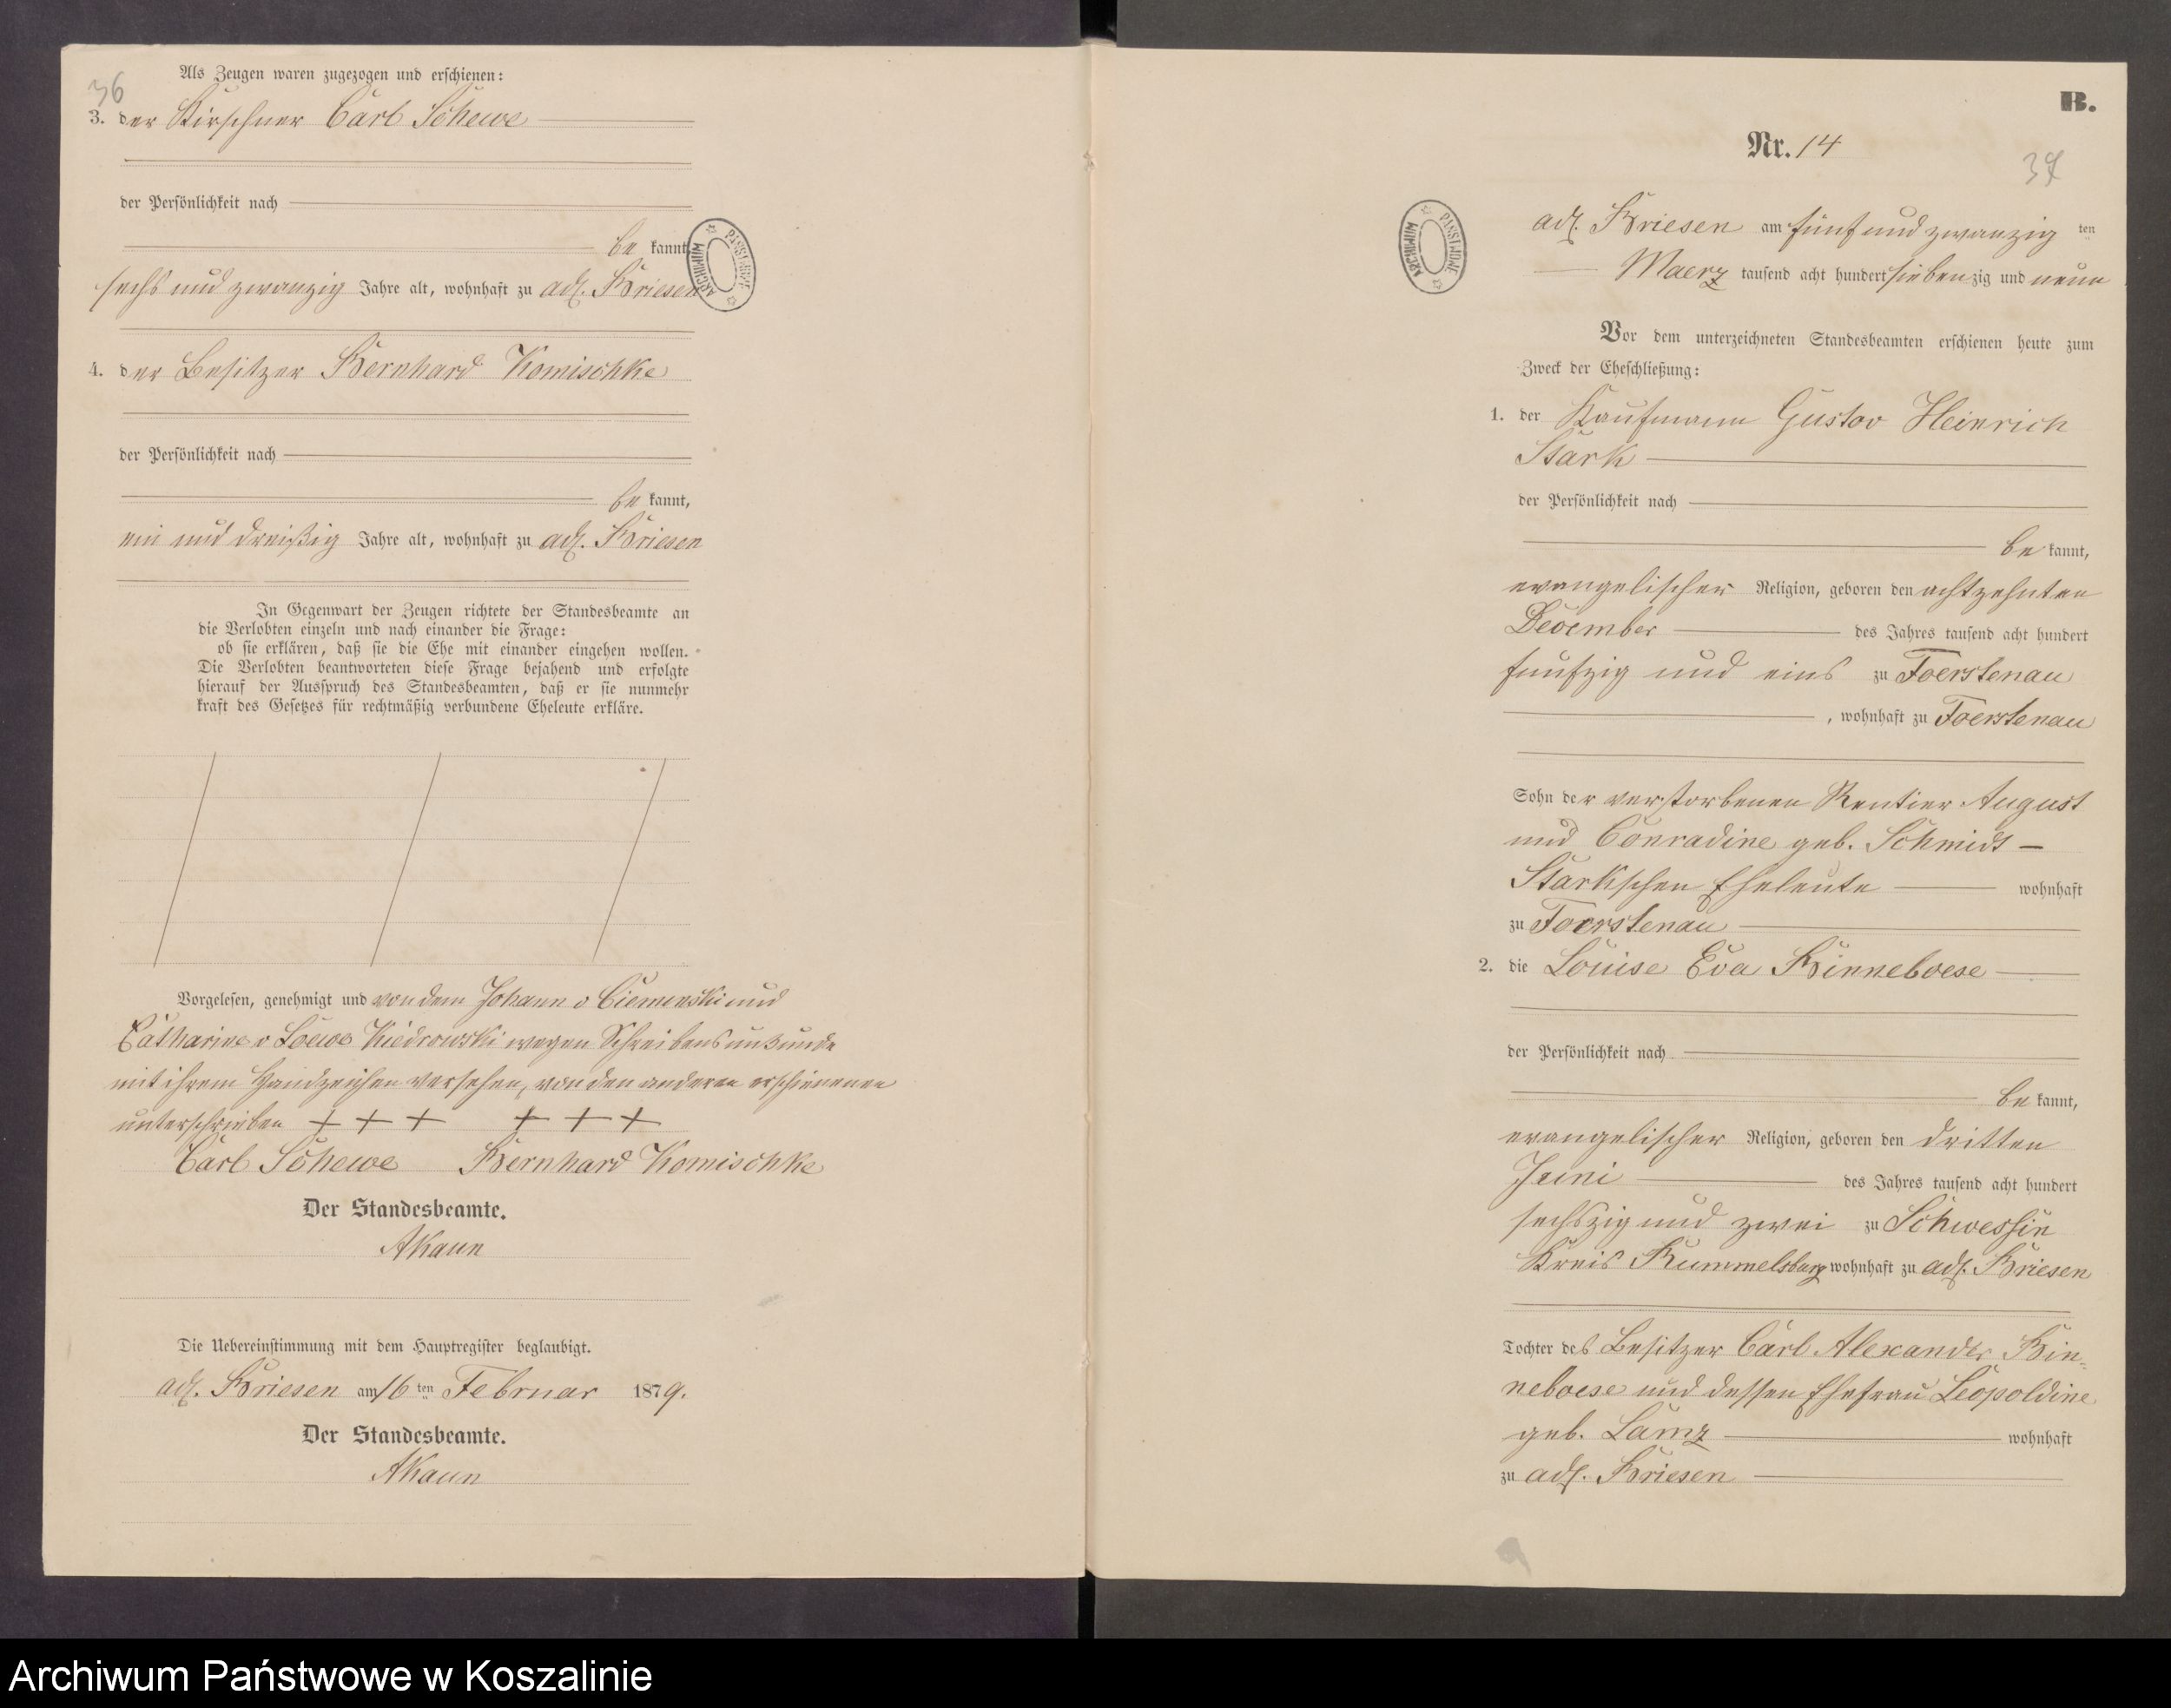 36
Als Zeugen waren zugezogen und erschienen:
3. der Kirschner Carl Schewe
der Persönlichkeit nach
be kannt
sechs und zwanzig Jahre alt, wohnhaft zu adl. Briesen
4. der Besitzer Bernhard Komischke
der Persönlichkeit nach
be kannt,
ein und dreißig Jahre alt, wohnhaft zu adl. Briesen
In Gegenwart der Zeugen richtete der Standesbeamte an
die Verlobten einzeln und nach einander die Frage:
ob sie erklären, daß sie die Ehe mit einander eingehen wollen.
Die Verlobten beantworteten diese Frage bejahend und erfolgte
hierauf der Ausspruch des Standesbeamten, daß er sie nunmehr
kraft des Gesetzes für rechtmäßig verbundene Eheleute erkläre.
Vorgelesen, genehmigt und von dem Johann v Ciemenski und
Catharine v Loewe Kiedrowski wegen Schreibensunkunde
mit ihrem Handzeichen versehen, von den anderen erschienenen
unterschrieben + + + + + +
Carl Schewe Bernhard Komischke
Der Standesbeamte.
AKaun
Die Uebereinstimmung mit dem Hauptregister beglaubigt.
adl. Briesen am 16 ten Februar 1879.
Der Standesbeamte.
AKaun
ARCHIWUM PAŃSTWOWE
B.
Nr. 14
37
adl. Briesen am fünf und zwanzig ten
Maerz tausend acht hundert siebenzig und neun
Vor dem unterzeichneten Standesbeamten erschienen heute zum
Zweck der Eheschließung:
1. der Kaufmann Gustav Heinrich
Stark
der Persönlichkeit nach
be kannt,
evangelischer Religion, geboren den achtzehnten
December des Jahres tausend acht hundert
funfzig und eins zu Foerstenau
, wohnhaft zu Foerstenau
Sohn der verstorbenen Rentier August
und Conradine geb. Schmidt –
Starkschen Eheleute wohnhaft
zu Foerstenau
2. die Louise Eva Binneboese
der Persönlichkeit nach
be kannt,
evangelischer Religion, geboren den dritten
Juni des Jahres tausend acht hundert
sechszig und zwei zu Schwessin
Kreis Rummelsburg wohnhaft zu adl. Briesen
Tochter des Besitzer Carl Alexander Bin=
neboese und dessen Ehefrau Leopoldine
geb. Lamz wohnhaft
zu adl. Briesen
ARCHIWUM PAŃSTWOWE
Archiwum Państwowe w Koszalinie